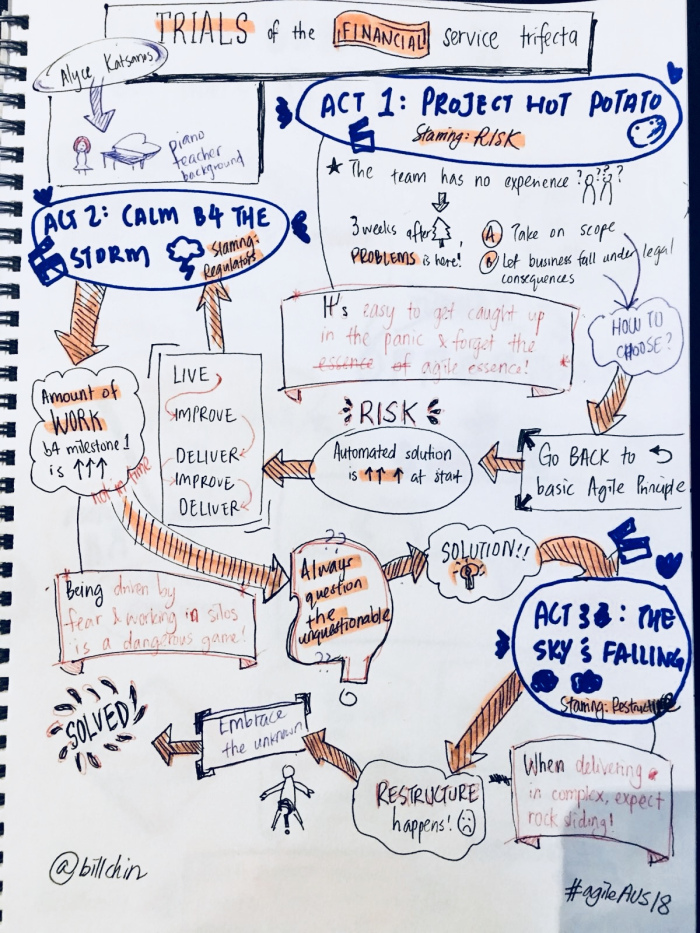 TRIALS of the FINANCIAL service trifecta
Alyce Katsanis
piano
teacher
background
ACT 1: PROJECT HOT POTATO
Starring: RISK
★ The team has no experience ????
3 weeks after
PROBLEMS is here!
A Take on scope
B Let business fall under legal
consequences
HOW TO
CHOOSE?
It's easy to get caught up
in the panic & forget the
essence of agile essence!
ACT 2: CALM B4 THE
STORM
Starring:
Regulators
Amount of
WORK
b4 milestone 1
is ↑↑↑
not in time
LIVE
IMPROVE
DELIVER
IMPROVE
DELIVER
RISK
Automated solution
is ↑↑↑ at start
Go BACK to
basic Agile Principle
Being driven by
fear & working in silos
is a dangerous game!
??
Always
question
the
unquestionable
??
SOLUTION!!
ACT 3 : THE
SKY'S FALLING
Starring:
When delivering
in complex, expect
rock sliding!
RESTRUCTURE
happens!
Embrace
the unknown!
SOLVED!
@billchin
#agileAUS18